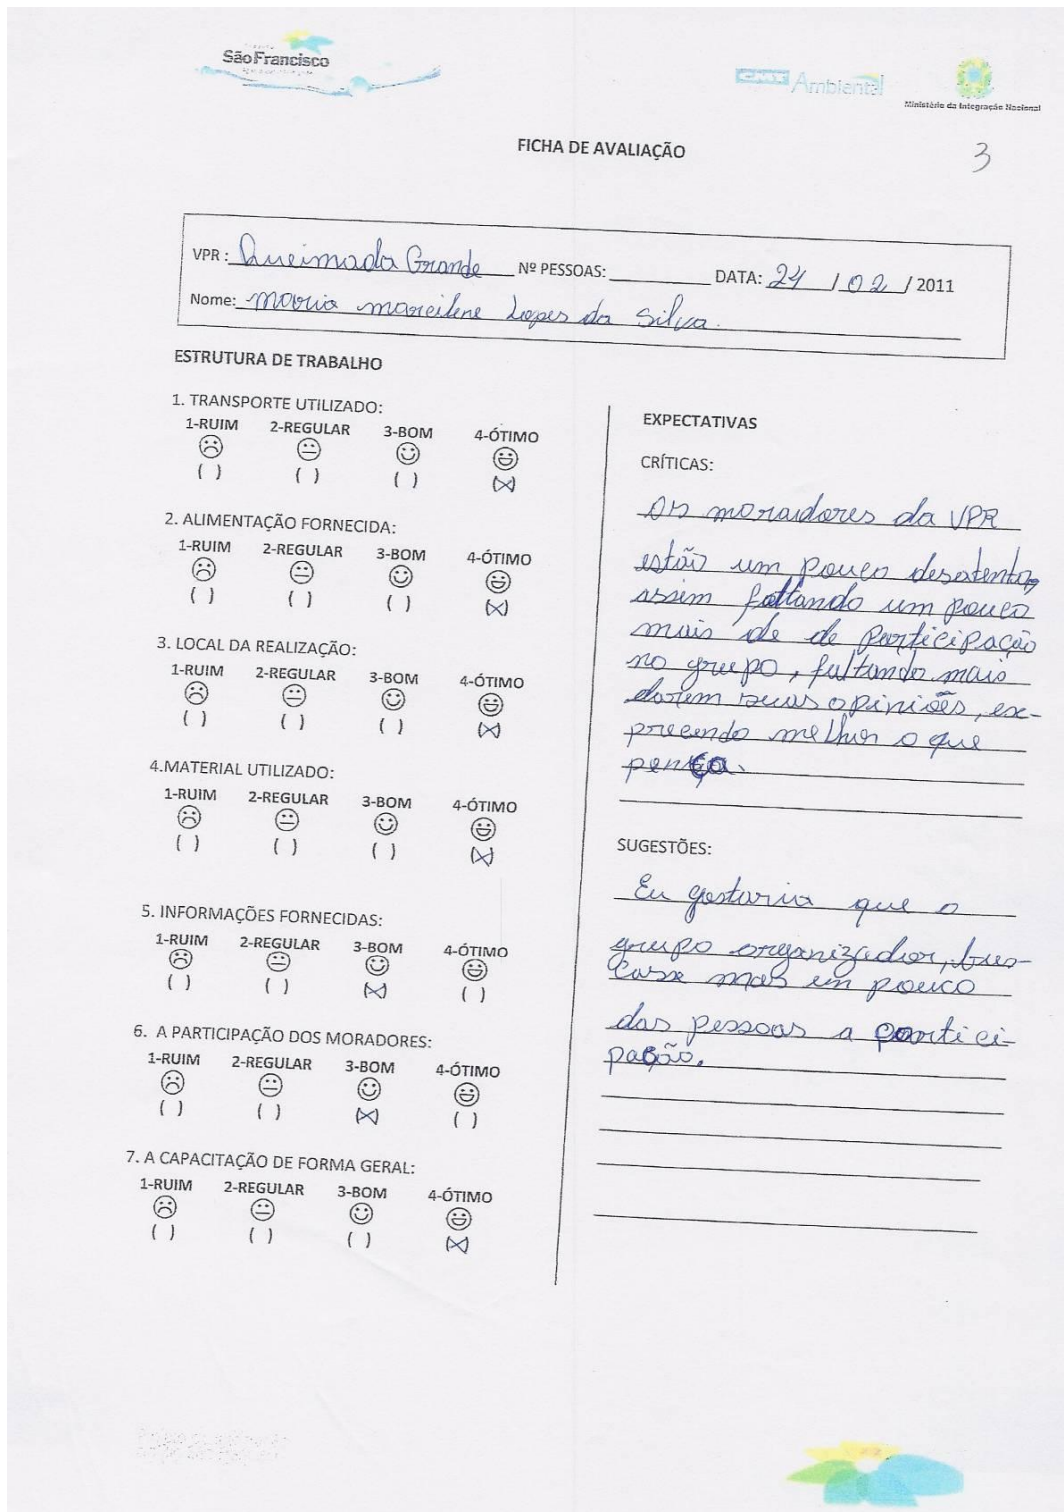 São Francisco
CMT Ambiental
Ministério da Integração Nacional
FICHA DE AVALIAÇÃO
3
VPR : Queimada Grande Nº PESSOAS: DATA: 24 / 02 / 2011
Nome: Maria Marcilene Lopes da Silva.
ESTRUTURA DE TRABALHO
1. TRANSPORTE UTILIZADO:
1-RUIM 2-REGULAR 3-BOM 4-ÓTIMO
( ) ( ) ( ) (X)
2. ALIMENTAÇÃO FORNECIDA:
1-RUIM 2-REGULAR 3-BOM 4-ÓTIMO
( ) ( ) ( ) (X)
3. LOCAL DA REALIZAÇÃO:
1-RUIM 2-REGULAR 3-BOM 4-ÓTIMO
( ) ( ) ( ) (X)
4.MATERIAL UTILIZADO:
1-RUIM 2-REGULAR 3-BOM 4-ÓTIMO
( ) ( ) ( ) (X)
5. INFORMAÇÕES FORNECIDAS:
1-RUIM 2-REGULAR 3-BOM 4-ÓTIMO
( ) ( ) (X) ( )
6. A PARTICIPAÇÃO DOS MORADORES:
1-RUIM 2-REGULAR 3-BOM 4-ÓTIMO
( ) ( ) (X) ( )
7. A CAPACITAÇÃO DE FORMA GERAL:
1-RUIM 2-REGULAR 3-BOM 4-ÓTIMO
( ) ( ) ( ) (X)
EXPECTATIVAS
CRÍTICAS:
Os moradores da VPR
estão um pouco desatentos,
assim faltando um pouco
mais de de participação
no grupo, faltando mais
darem suas opiniões, ex-
precendo melhor o que
pença.
SUGESTÕES:
Eu gostaria que o
grupo organizador, bus-
casse mas um pouco
das pessoas a partici-
pação.